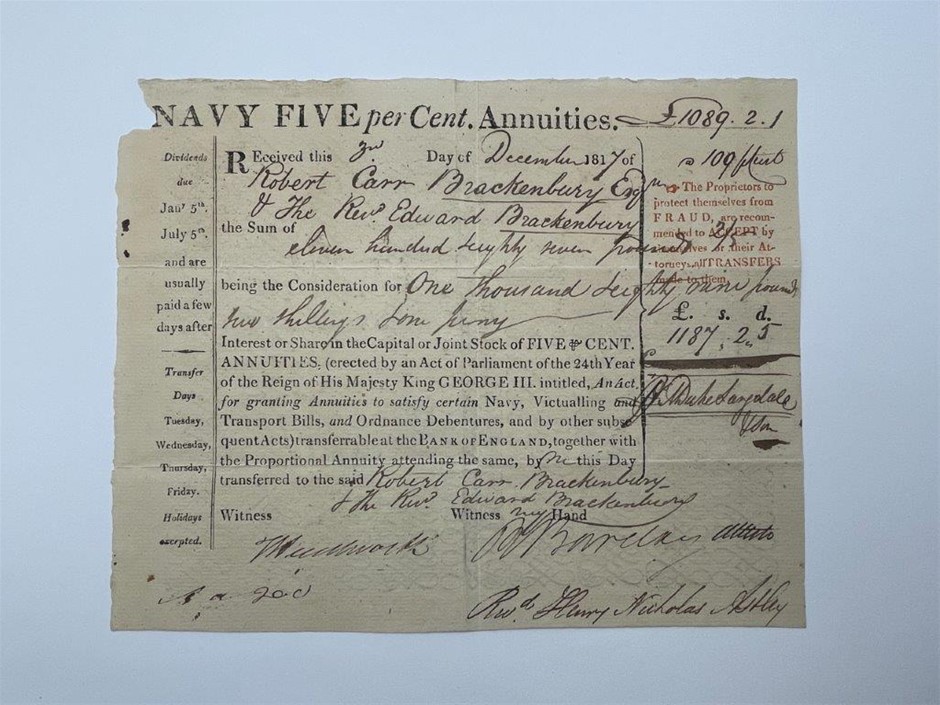 NAVY FIVE per Cent. Annuities. £1089.2.1
Dividends
due
Janʸ 5ᵗʰ.
July 5ᵗʰ.
and are
usually
paid a few
days after
Transfer
Days
Tuesday,
Wednesday,
Thursday,
Friday.
Holidays
excepted.
REceived this 3rd Day of December 1817 of
Robert Carr Brackenbury Esqr
& The Revd. Edward Brackenbury
the Sum of
eleven hundred & eighty seven pounds 2/5
being the Consideration for One thousand & eighty nine pounds
two shillings & one penny
Interest or Share in the Capital or Joint Stock of FIVE per CENT.
ANNUITIES, (erected by an Act of Parliament of the 24th Year
of the Reign of His Majesty King GEORGE III. intitled, An Act
for granting Annuities to satisfy certain Navy, Victualling and
Transport Bills, and Ordnance Debentures, and by other subse
quent Acts) transferrable at the BANK OF ENGLAND, together with
the Proportional Annuity attending the same, by me this Day
transferred to the said Robert Carr Brackenbury
& The Revd. Edward Brackenbury
Witness Witness my Hand
Revd. Henry Nicholas Astley
a 109
The Proprietors to
protect themselves from
FRAUD, are recom-
mended to ACCEPT by
themselves or their At-
torneys, all TRANSFERS
made to them.
£. s. d.
1187,, 2,, 5
& Son